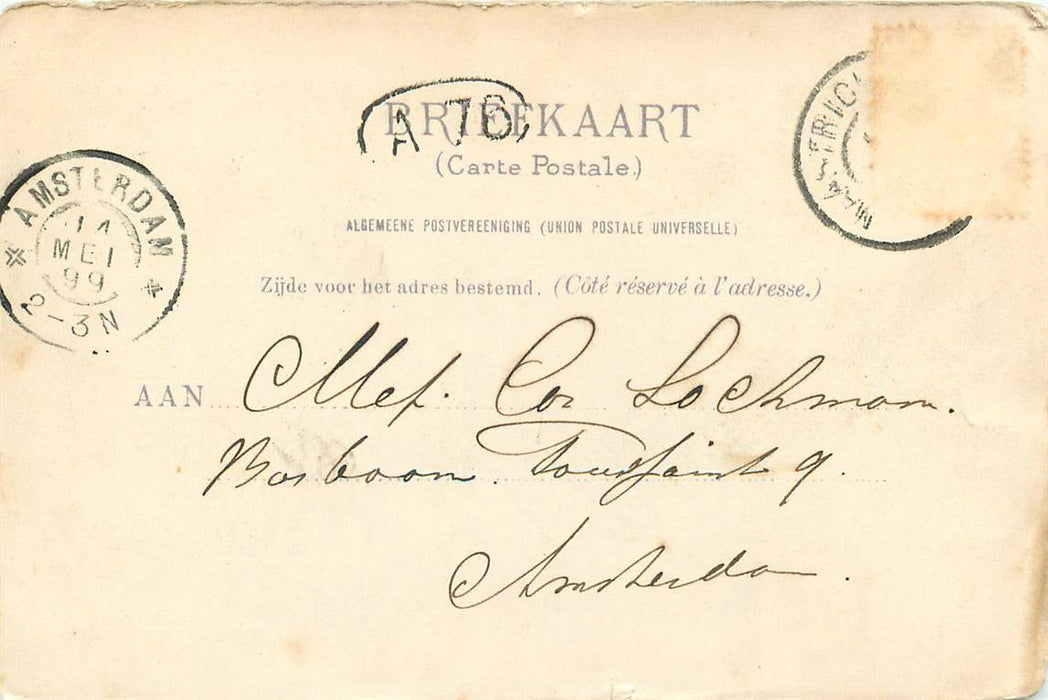 BRIEFKAART
A 76
(Carte Postale.)
MAASTRICH
ALGEMEENE POSTVEREENIGING (UNION POSTALE UNIVERSELLE)
AMSTERDAM
14
MEI
99
2-3N
Zijde voor het adres bestemd. (Côté réservé à l'adresse.)
AAN Mej. Cor Lochmom.
Bosboom Toussaint 9.
Amsterdam.